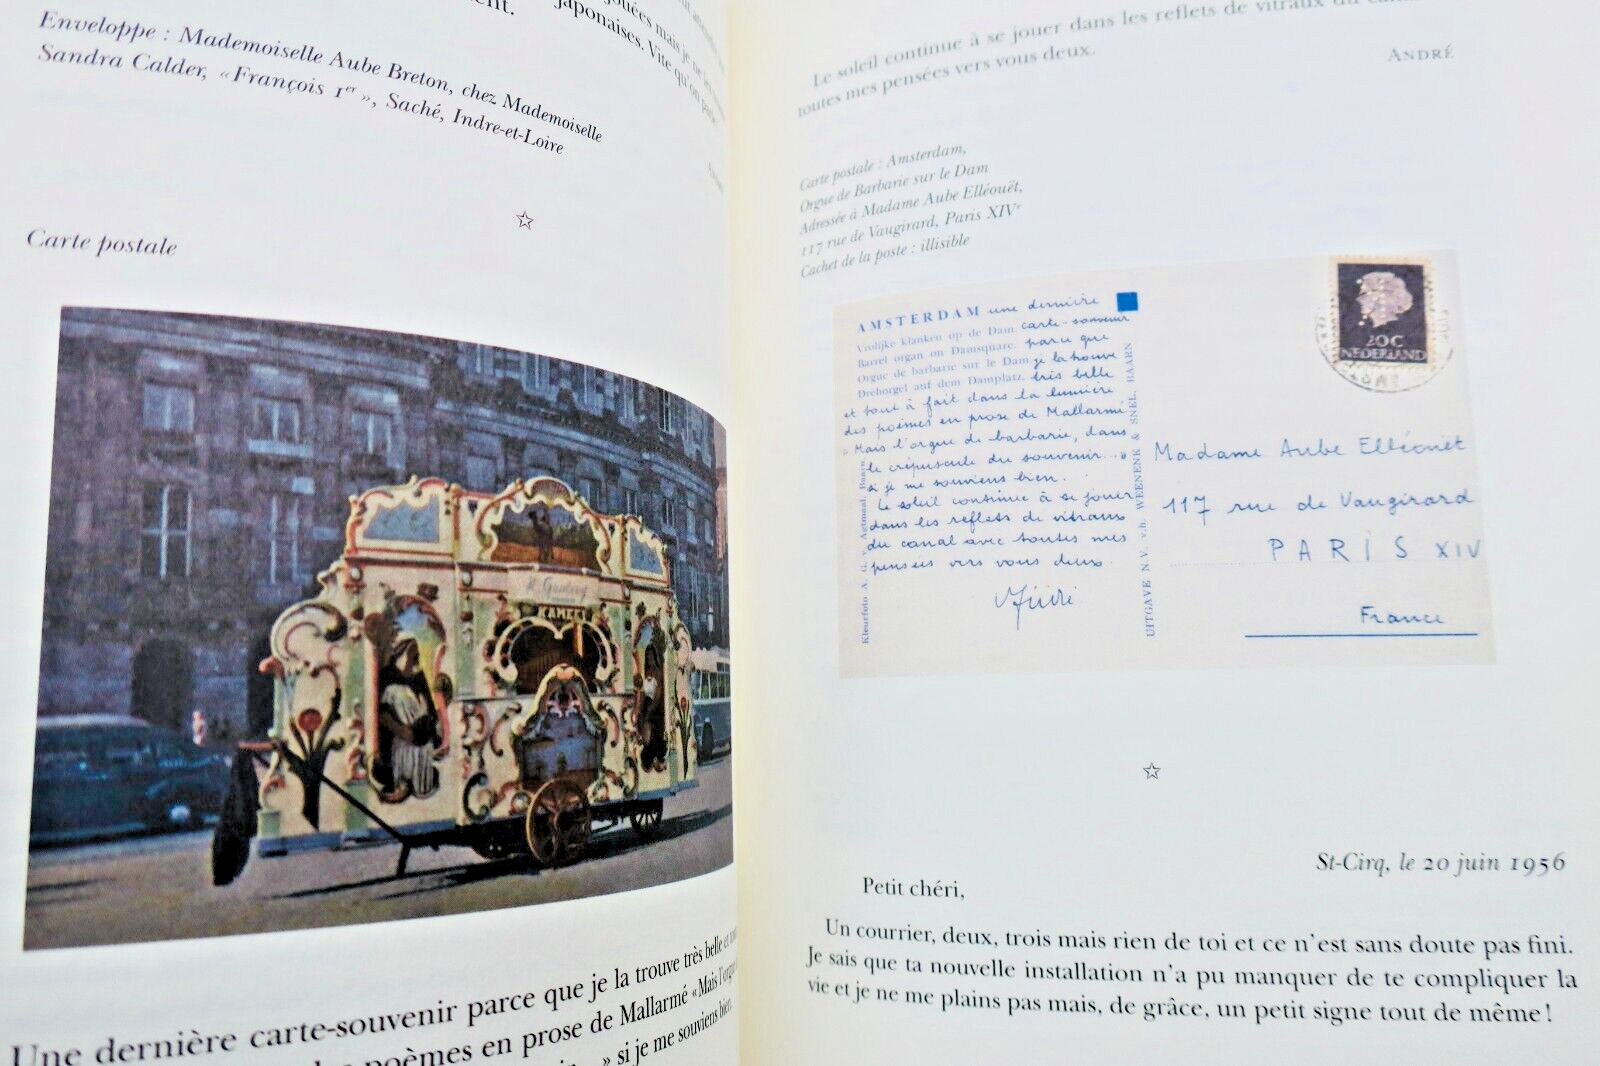 ment.
jouées mais je ne les
japonaises. Vite qu'on
Enveloppe : Mademoiselle Aube Breton, chez Mademoiselle
Sandra Calder, « François 1er », Saché, Indre-et-Loire
☆
Carte postale
KAMEEL
Une dernière carte-souvenir parce que je la trouve très belle et
poèmes en prose de Mallarmé « Mais l'orgue
» si je me souviens bien.
Le soleil continue à se jouer dans les reflets de vitraux du
toutes mes pensées vers vous deux.
ANDRÉ
Carte postale : Amsterdam,
Orgue de Barbarie sur le Dam
Adressée à Madame Aube Elléouët,
117 rue de Vaugirard, Paris XIVe
Cachet de la poste : illisible
AMSTERDAM
Vrolijke klanken op de Dam.
Barrel organ on Damsquare.
Orgue de barbarie sur le Dam.
Drehorgel auf dem Damplatz.
une dernière
carte-souvenir
parce que
je la trouve
très belle
et tout à fait dans la lumière
des poèmes en prose de Mallarmé
"Mais l'orgue de barbarie, dans
le crépuscule du souvenir..."
si je me souviens bien.
Le soleil continue à se jouer
dans les reflets de vitraux
du canal avec toutes mes
pensées vers vous deux.
André
Kleurfoto A. G. v. Agtmaal, Baarn
UITGAVE N.V. v.h. WEENENK & SNEL, BAARN
20C
NEDERLAND
Madame Aube Elléouët
117 rue de Vaugirard
PARIS XIV
France
☆
St-Cirq, le 20 juin 1956
Petit chéri,
Un courrier, deux, trois mais rien de toi et ce n'est sans doute pas fini.
Je sais que ta nouvelle installation n'a pu manquer de te compliquer la
vie et je ne me plains pas mais, de grâce, un petit signe tout de même !